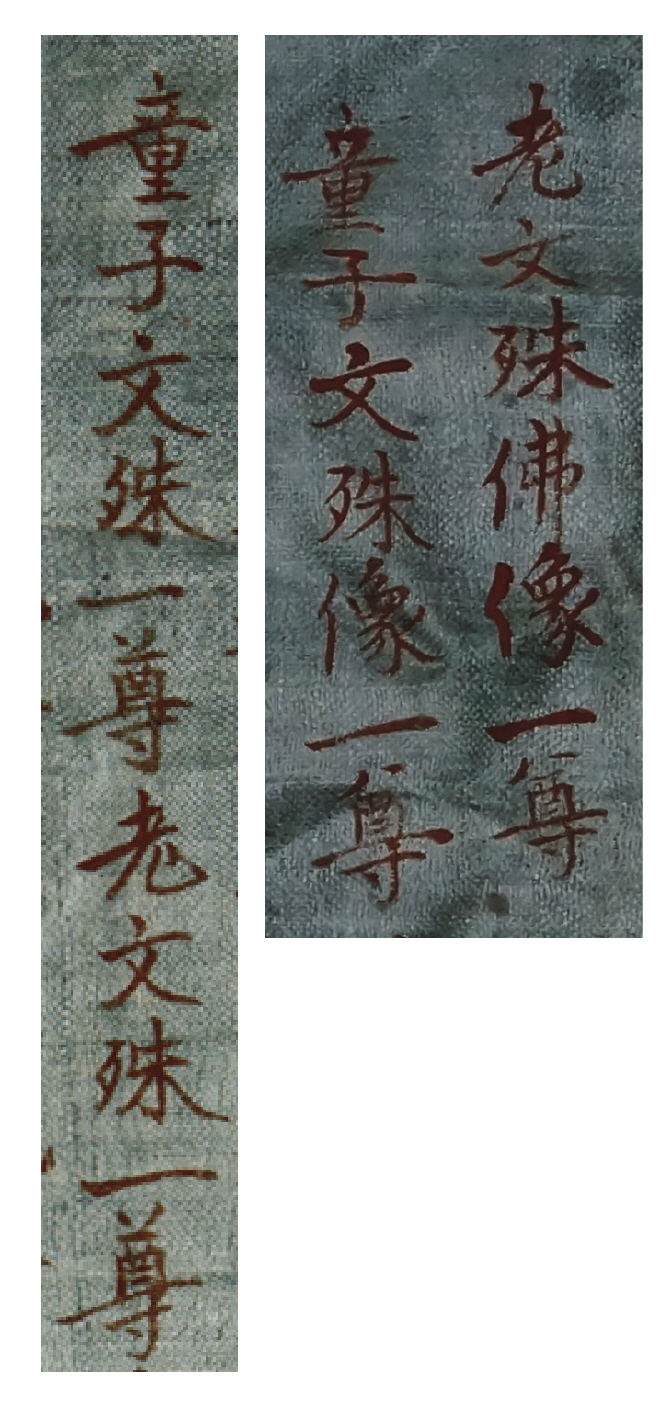 童子文殊一尊老文殊一尊
老文殊佛像一尊
童子文殊像一尊